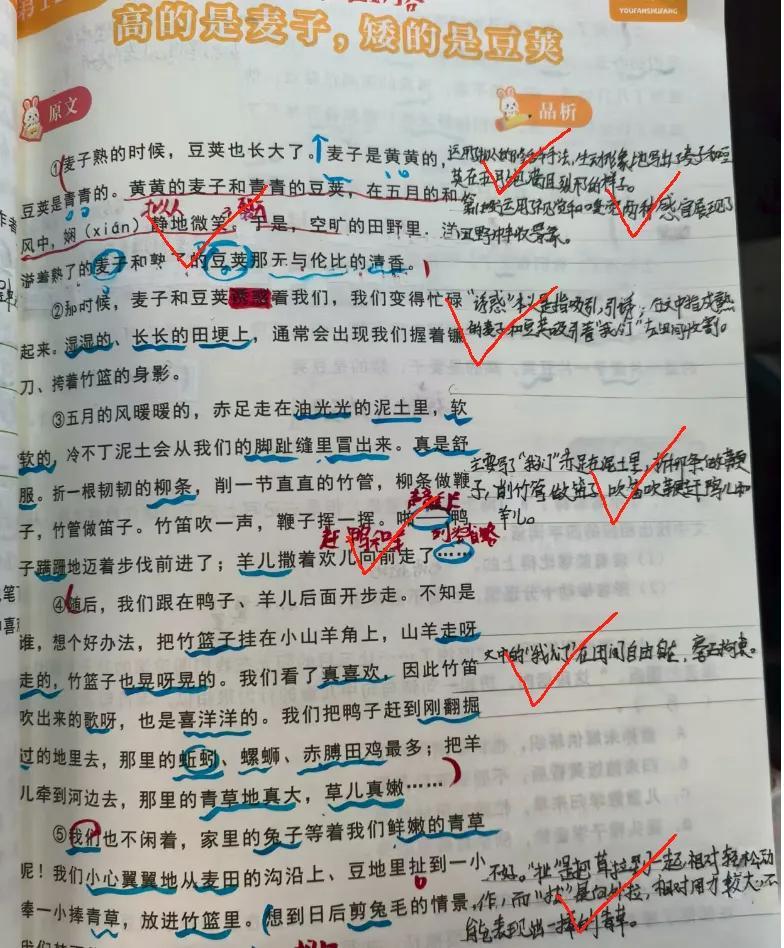 YOUFANSHUFANG
高的是麦子，矮的是豆荚
原文
品析
①麦子熟的时候，豆荚也长大了。麦子是黄黄的，
豆荚是青青的。黄黄的麦子和青青的豆荚，在五月的和
风中，娴（xián）静地微笑。于是，空旷的田野里，洋
溢着熟了的麦子和熟了的豆荚那无与伦比的清香。
拟人
②那时候，麦子和豆荚诱惑着我们，我们变得忙碌
起来。湿湿的、长长的田埂上，通常会出现我们握着镰
刀、挎着竹篮的身影。
"诱惑"本义是指吸引，引诱；在文中指成熟
的麦子和豆荚吸引着"我们"去田间收割。
③五月的风暖暖的，赤足走在油光光的泥土里，软
软的，冷不丁泥土会从我们的脚趾缝里冒出来。真是舒
服。折一根韧韧的柳条，削一节直直的竹管，柳条做鞭
子，竹管做笛子。竹笛吹一声，鞭子挥一挥。啪 鸭
子蹒跚地迈着步伐前进了；羊儿撒着欢儿向前走了……
主要写了"我们"赤足走在泥土里，折柳条做鞭
子，削竹管做笛子，吹笛
羊儿。
④随后，我们跟在鸭子、羊儿后面开步走。不知是
谁，想个好办法，把竹篮子挂在小山羊角上，山羊走呀
走的，竹篮子也晃呀晃的。我们看了真喜欢，因此竹笛
吹出来的歌呀，也是喜洋洋的。我们把鸭子赶到刚翻掘
过的地里去，那里的蚯蚓、螺蛳、赤膊田鸡最多；把羊
儿牵到河边去，那里的青草地真大，草儿真嫩……
文中的"我们"在田间自由自在，无拘
⑤我们也不闲着，家里的兔子等着我们鲜嫩的青草
呢！我们小心翼翼地从麦田的沟沿上、豆地里扯到一小
捧一小捧青草，放进竹篮里。想到日后剪兔毛的情景，
不好。"扯"是把草拉到一起，相对轻松动
作，而"拔"是向外拉，相对用力较大，不
能表现出一捧的青草。